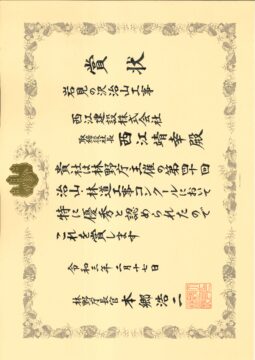 賞状
岩見の沢治山工事
西江建設株式会社
取締役社長 西江靖幸殿
貴社は林野庁主催の第四十回
治山・林道工事コンクールにおいて
特に優秀と認められたので
これを賞します
令和三年二月十七日
林野庁長官 本郷浩二